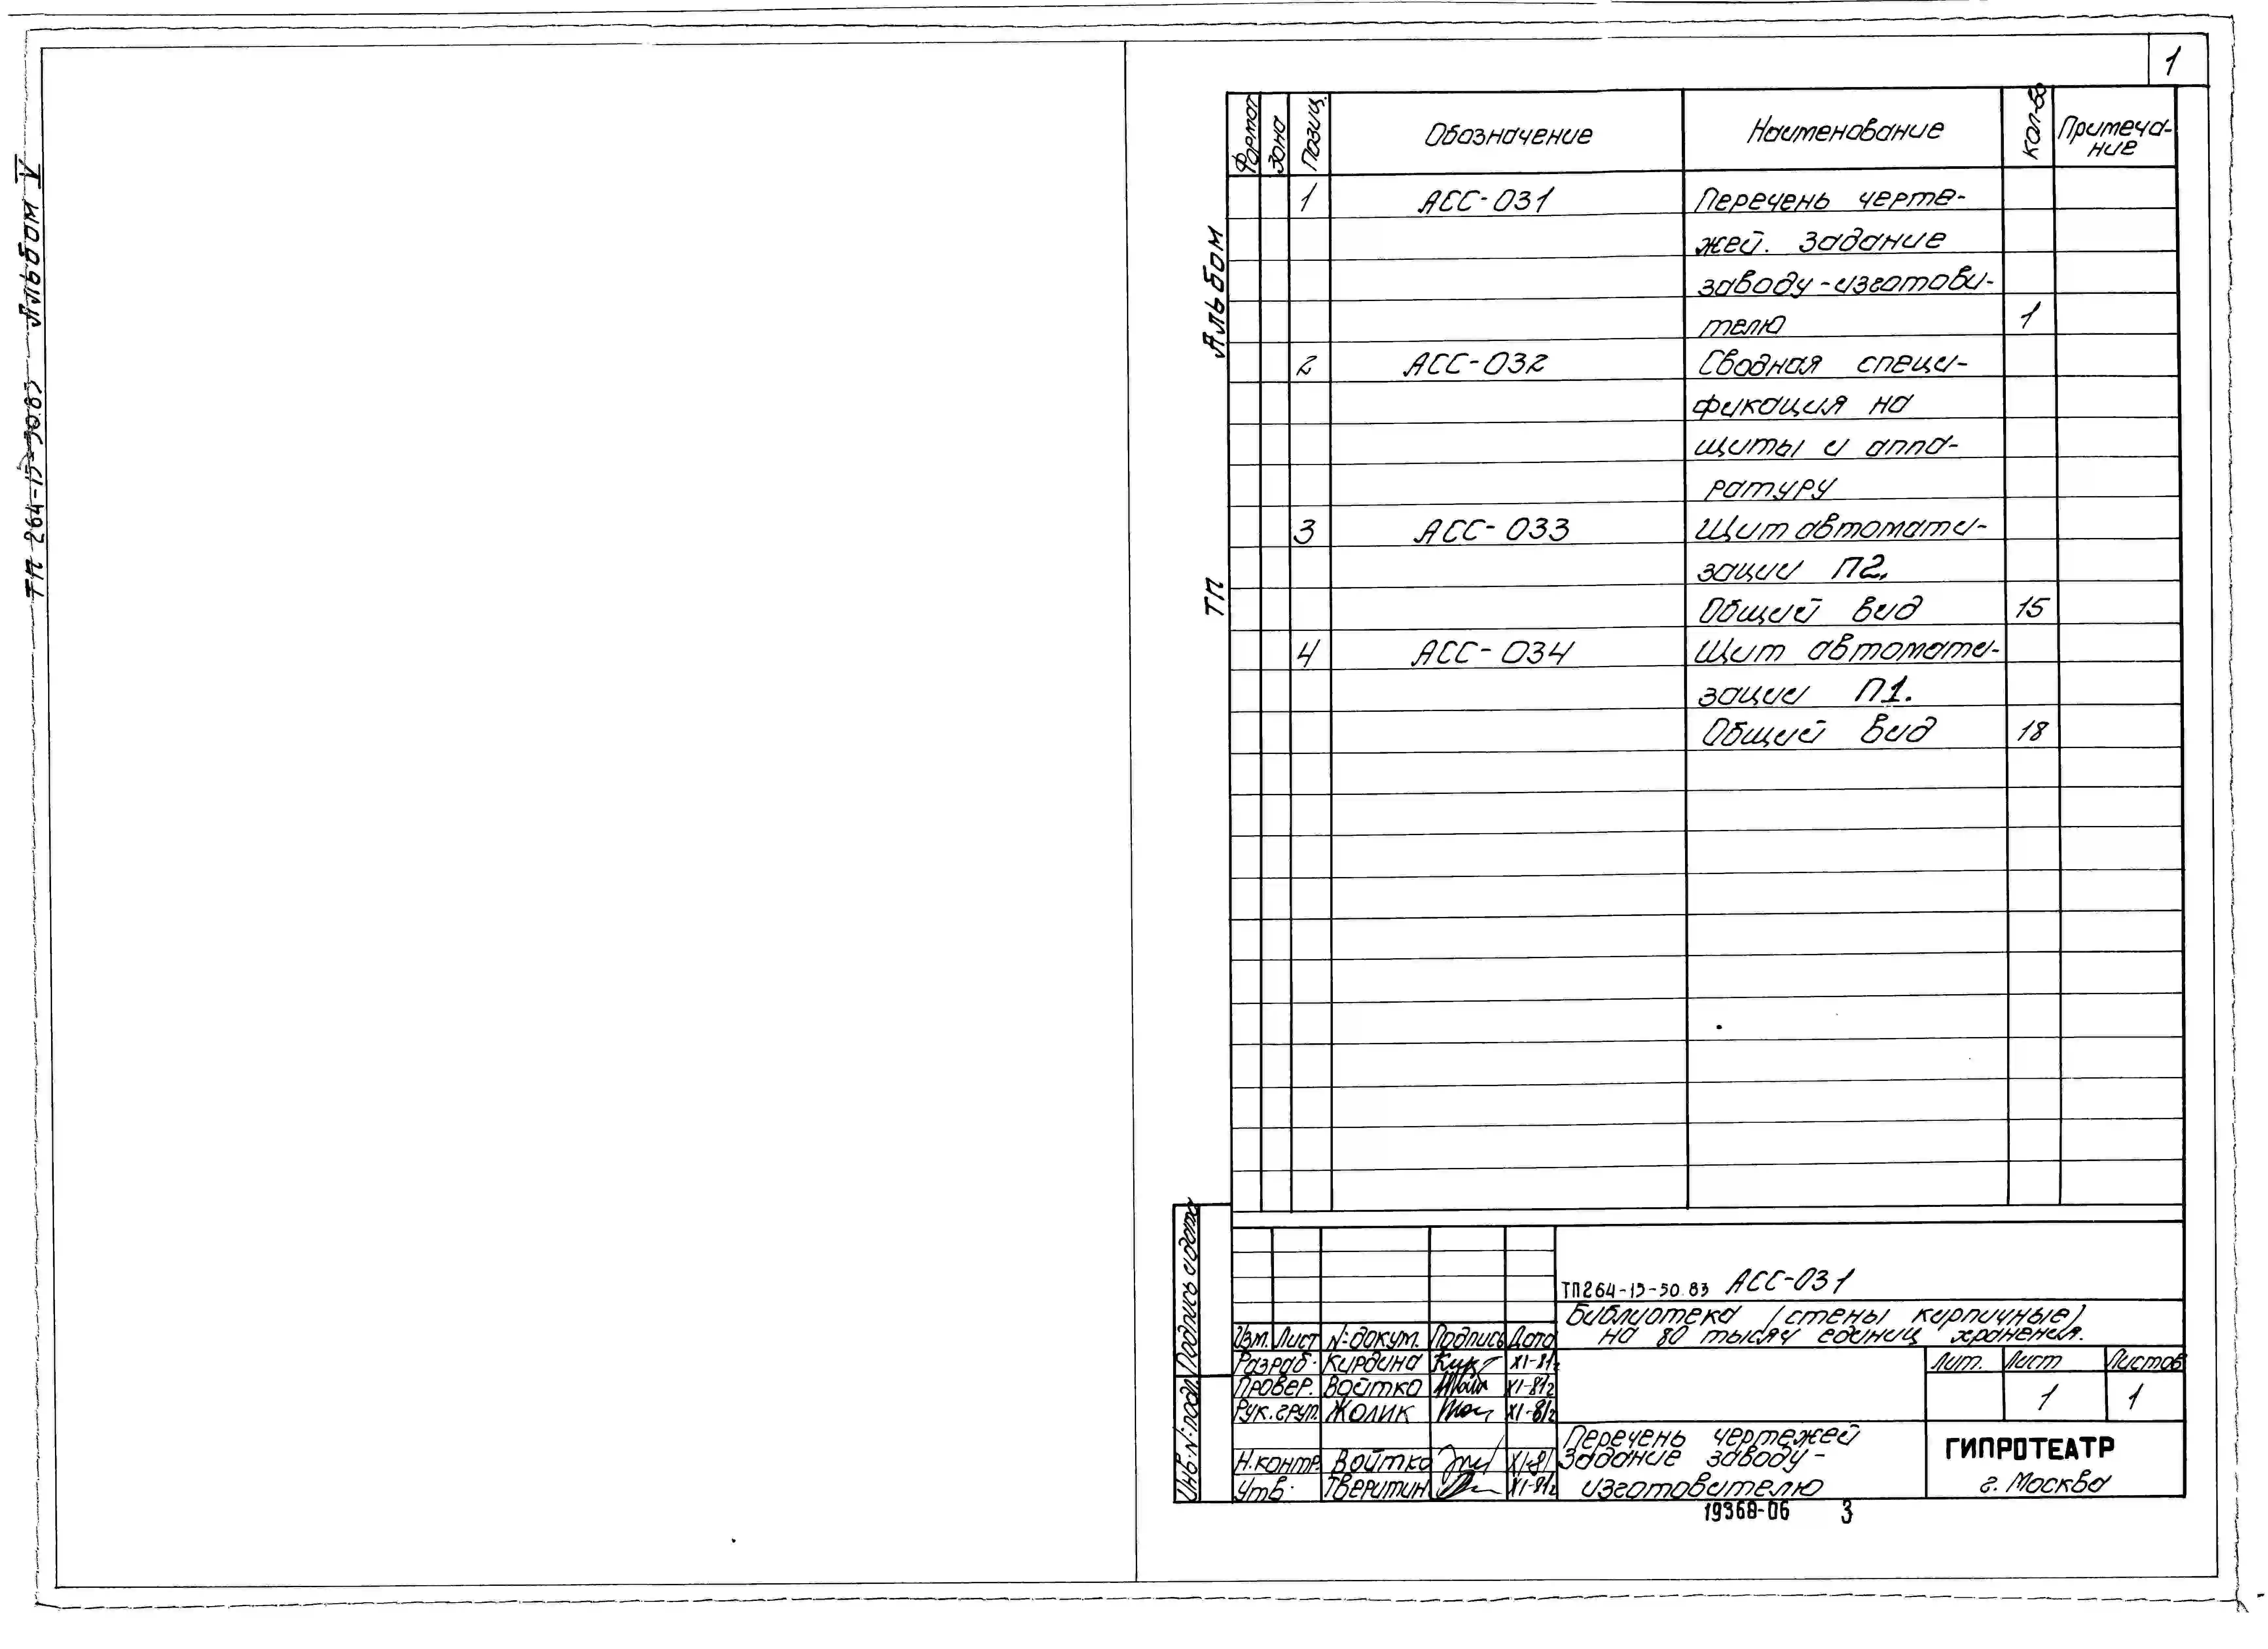 ТП 264-15-50.83 Альбом V
1
Альбом
ТП
Формат Зона Позиц. Обозначение Наименование Кол-во Примеча-
ние
1 АСС-031 Перечень черте-
жей. Задание
заводу-изготови-
телю 1
2 АСС-032 Сводная специ-
фикация на
щиты и аппа-
ратуру
3 АСС-033 Щит автомати-
зации П2.
Общий вид 15
4 АСС-034 Щит автомати-
зации П1.
Общий вид 18
Подпись и дата
Инв.N:подл.
ТП264-15-50.83 АСС-031
Библиотека (стены кирпичные)
на 80 тысяч единиц хранения.
Изм. Лист N:докум. Подпись Дата
Разраб. Кирдина XI-81г
Провер. Войтко XI-81г
Рук.груп. Жолик XI-81г
Н.контр. Войтко XI-81
Утв. Тверитин XI-81г
Лит. Лист Листов
1 1
Перечень чертежей
Задание заводу-
изготовителю
ГИПРОТЕАТР
г. Москва
19368-06 3